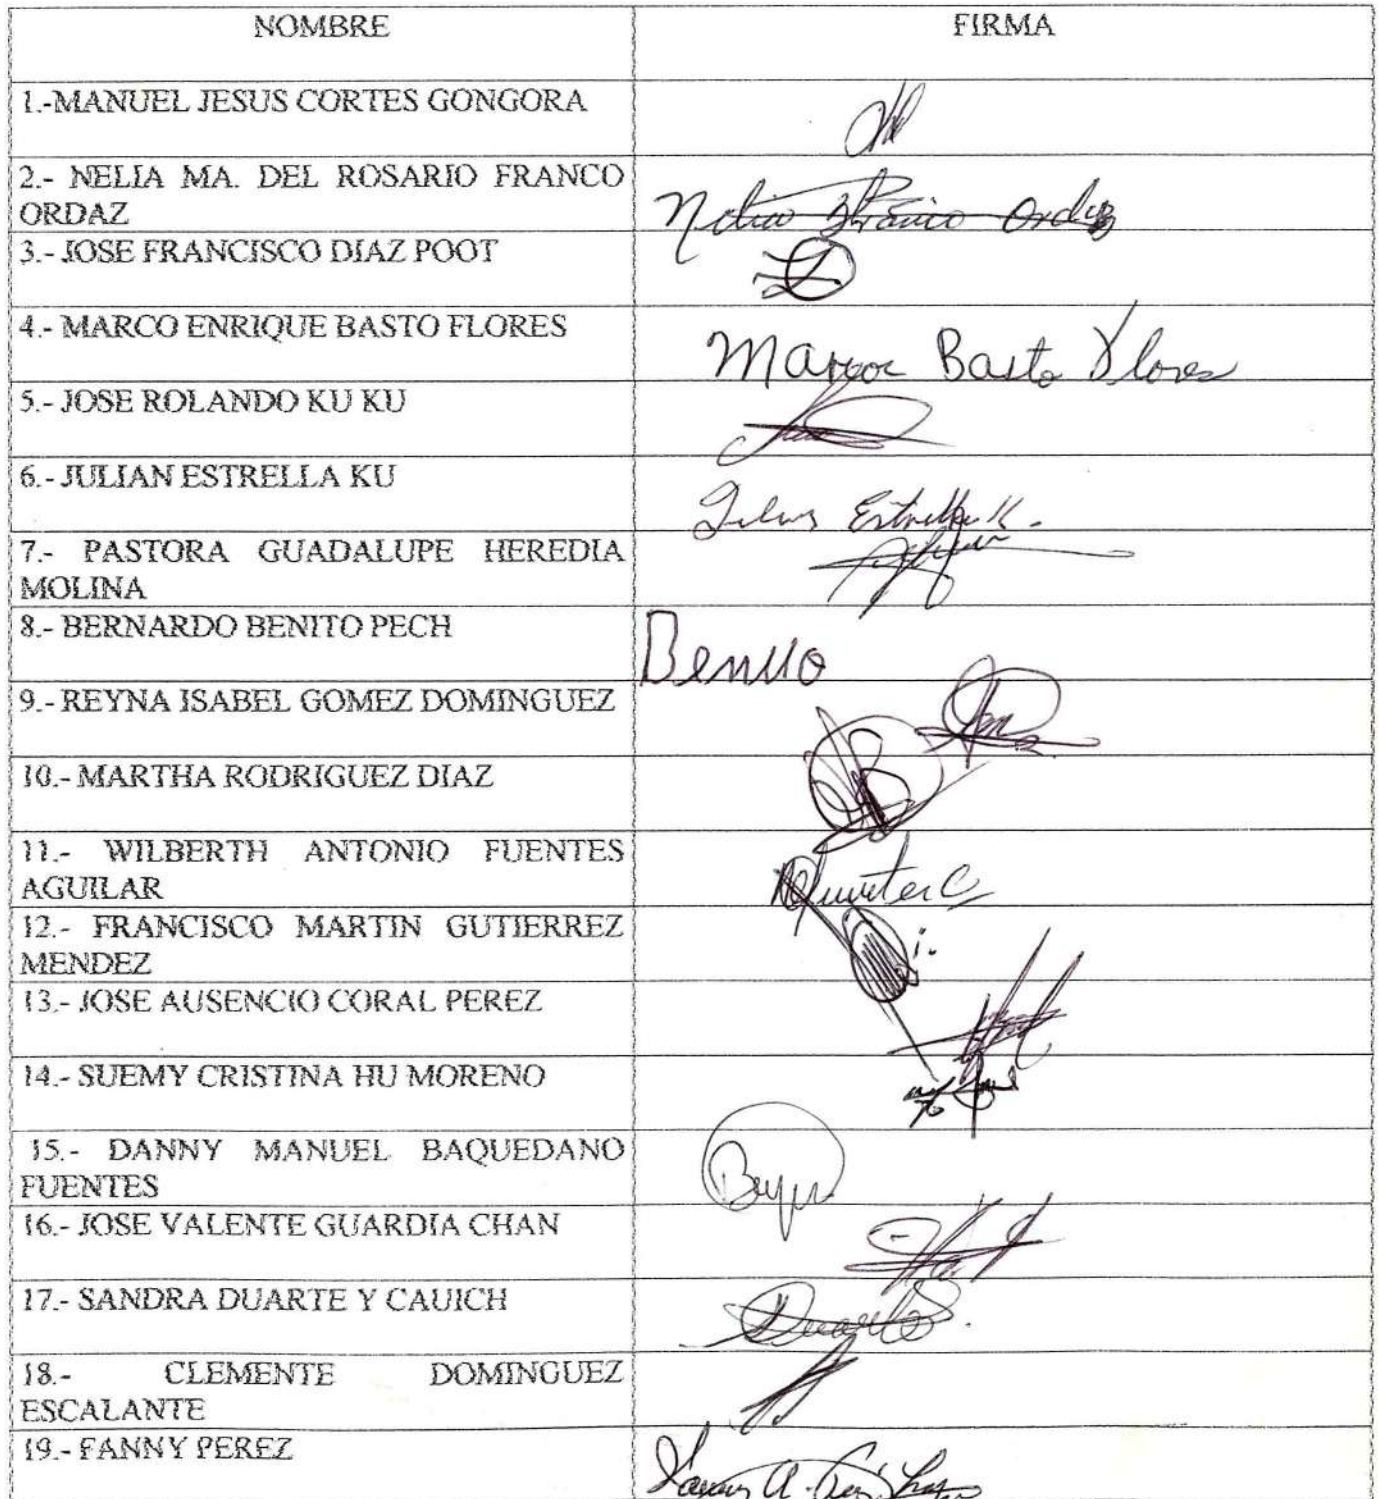 NOMBRE FIRMA
1.-MANUEL JESUS CORTES GONGORA
2.- NELIA MA. DEL ROSARIO FRANCO
ORDAZ
3.- JOSE FRANCISCO DIAZ POOT
4.- MARCO ENRIQUE BASTO FLORES
Marcos Basto Flores
5.- JOSE ROLANDO KU KU
6.- JULIAN ESTRELLA KU
Estrella K.
7.- PASTORA GUADALUPE HEREDIA
MOLINA
8.- BERNARDO BENITO PECH
Benito
9.- REYNA ISABEL GOMEZ DOMINGUEZ
10.- MARTHA RODRIGUEZ DIAZ
11.- WILBERTH ANTONIO FUENTES
AGUILAR
12.- FRANCISCO MARTIN GUTIERREZ
MENDEZ
13.- JOSE AUSENCIO CORAL PEREZ
14.- SUEMY CRISTINA HU MORENO
15.- DANNY MANUEL BAQUEDANO
FUENTES
16.- JOSE VALENTE GUARDIA CHAN
17.- SANDRA DUARTE Y CAUICH
Duarte S.
18.- CLEMENTE DOMINGUEZ
ESCALANTE
19.- FANNY PEREZ